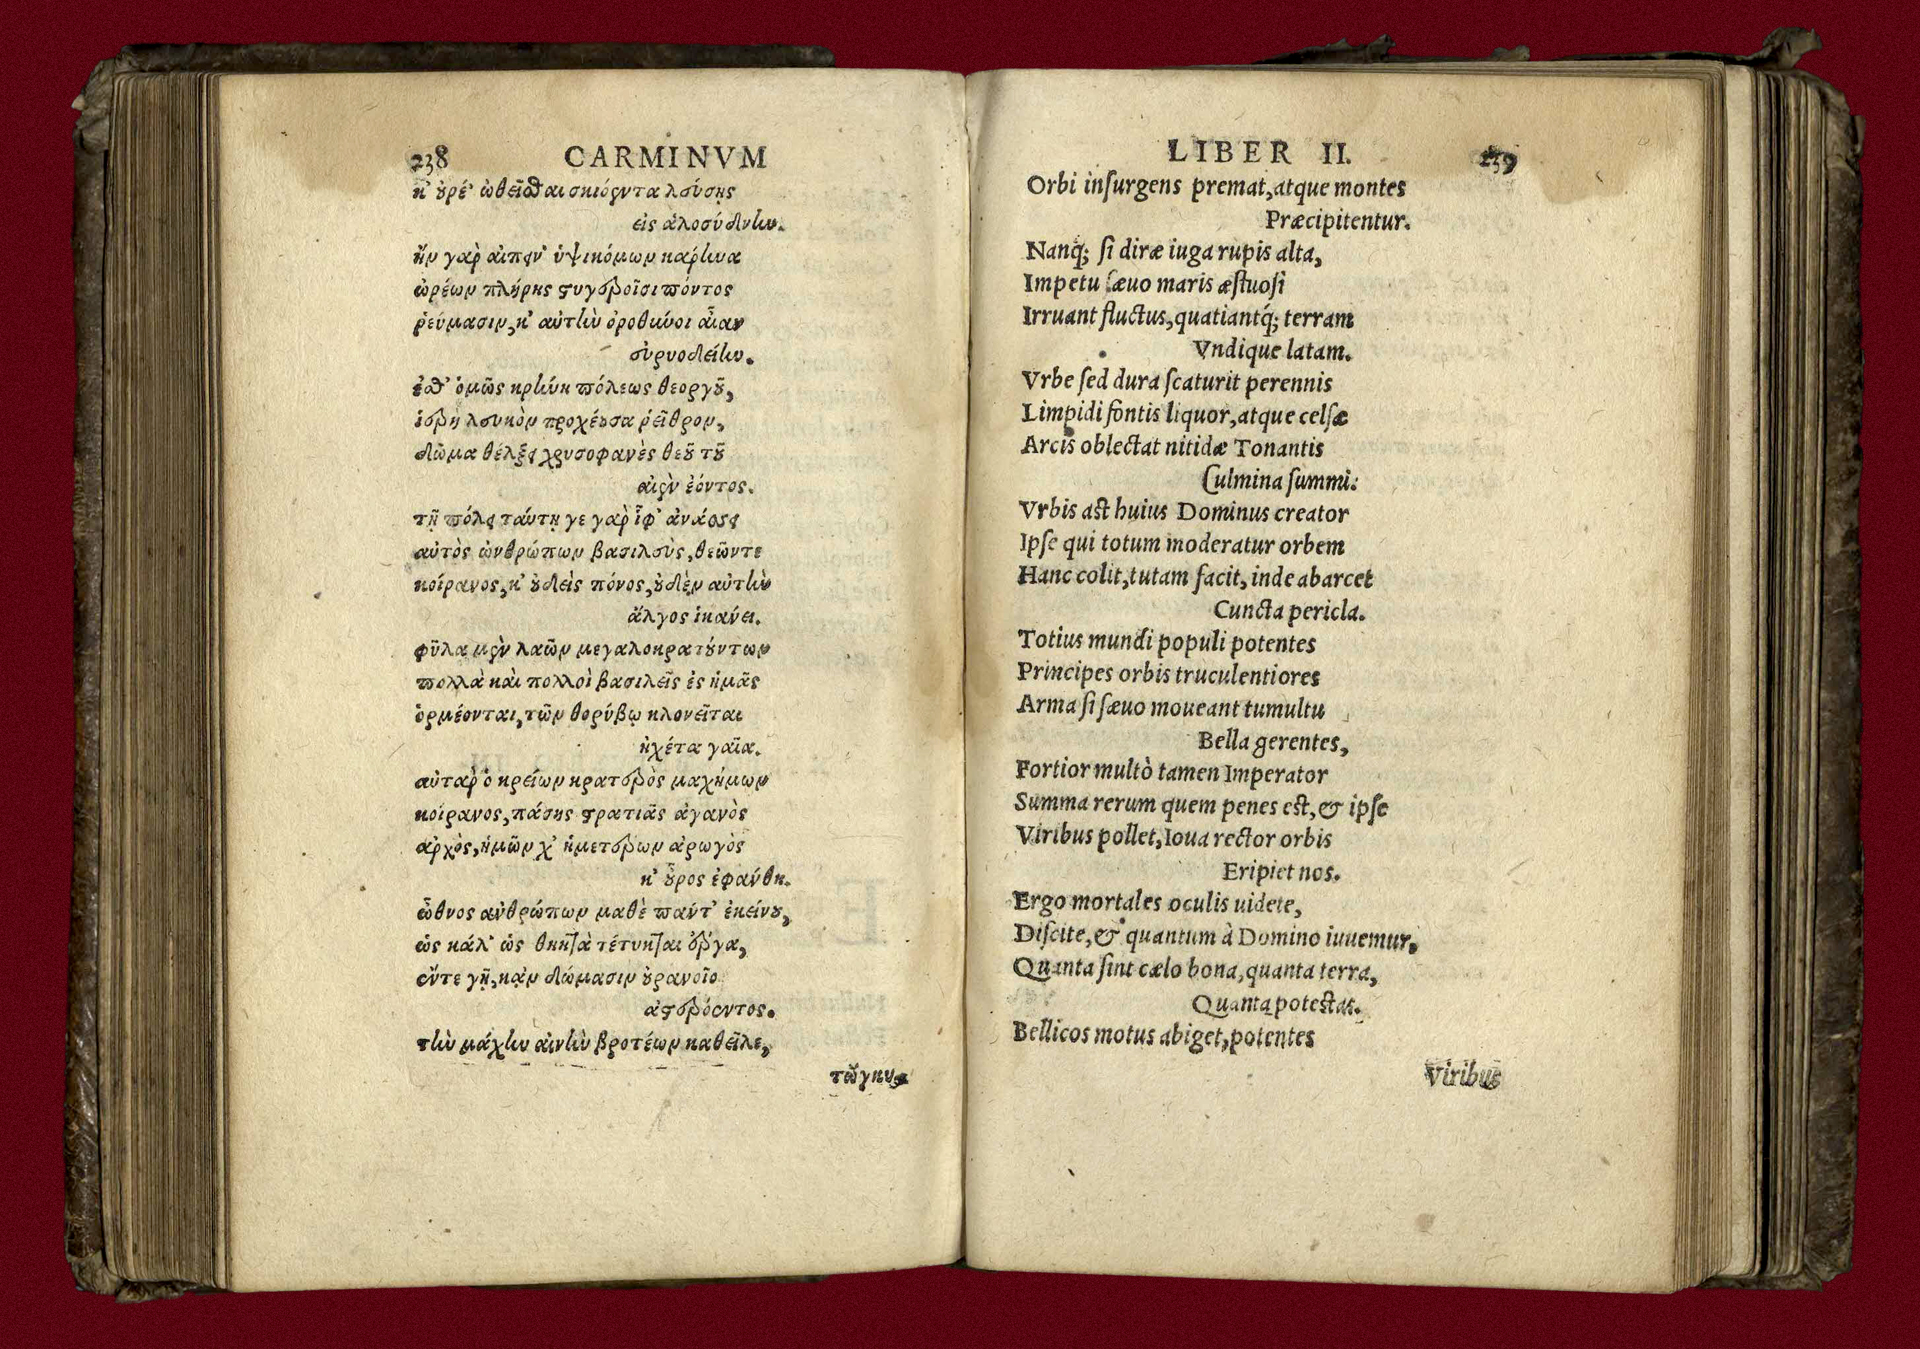 238 CARMINVM
κ' ȣ̓ρέ' ὠθεῖσθαι σκιόεντα λεύσῃς
εἰς ἁλοσύδνην.
ἤν γὰρ αἰπεῖν' ὑψικόμων κάρηνα
ὠρέων πλήρης στυγεροῖσι πόντος
ῥεύμασιν, κ' αὐτὴν ὀροθύνοι αἶαν
εὐρυοδείην.
ἔσθ' ὁμῶς κρήνη πόλεως θεοργȣ͂,
ἱερὴ λευκὸν προχέȣσα ῥεῖθρον,
δῶμα θέλξει χρυσοφανὲς θεȣ͂ τȣ͂
αἰὲν ἐόντος.
τῇ πόλει ταύτῃ γε γὰρ ἶφ' ἀνάσσει
αὐτὸς ἀνθρώπων βασιλεὺς, θεῶντε
κοίρανος, κ' ȣ̓δεὶς πόνος, ȣ̓δὲν αὐτὴν
ἄλγος ἱκάνει.
φῦλα μὲν λαῶν μεγαλοκρατȣ́ντων
πολλὰ καὶ πολλοὶ βασιλεῖς ἐς ἡμᾶς
ὁρμέονται, τῶν θορύβῳ κλονεῖται
ἠχέτα γαῖα.
αὐτὰρ ὁ κρείων κρατερὸς μαχήμων
κοίρανος, πάσης στρατιᾶς ἀγανὸς
ἀρχὸς, ἡμῶν χ' ἡμετέρων ἀρωγὸς
κ' ȣ̓͂ρος ἐφάνθη.
ὦ ἔθνος ἀνθρώπων μαθὲ πάντ' ἐκείνȣ,
ὡς κάλ' ὡς θηητὰ τέτυκται ἔργα,
ἔντε γῇ, κᾀν δώμασιν ȣ̓ρανοῖο
ἀστερόεντος.
τὴν μάχην αἰνὴν βροτέων καθεῖλε,
LIBER II. 239
Orbi inſurgens premat, atque montes
Præcipitentur.
Nanq; ſi diræ iuga rupis alta,
Impetu ſæuo maris æſtuoſi
Irruant fluctus, quatiantq́; terram
Vndique latam.
Vrbe ſed dura ſcaturit perennis
Limpidi fontis liquor, atque celſæ
Arcis oblectat nitidæ Tonantis
Culmina ſummi:
Vrbis aſt huius Dominus creator
Ipſe qui totum moderatur orbem
Hanc colit, tutam facit, inde abarcet
Cuncta pericla.
Totius mundi populi potentes
Principes orbis truculentiores
Arma ſi ſæuo moueant tumultu
Bella gerentes,
Fortior multò tamen Imperator
Summa rerum quem penes eſt, & ipſe
Viribus pollet, Ioua rector orbis
Eripiet nos.
Ergo mortales oculis uidete,
Diſcite, & quantum à Domino iuuemur,
Quanta ſint cælo bona, quanta terra,
Quanta poteſtas.
Bellicos motus abiget, potentes
Viribus